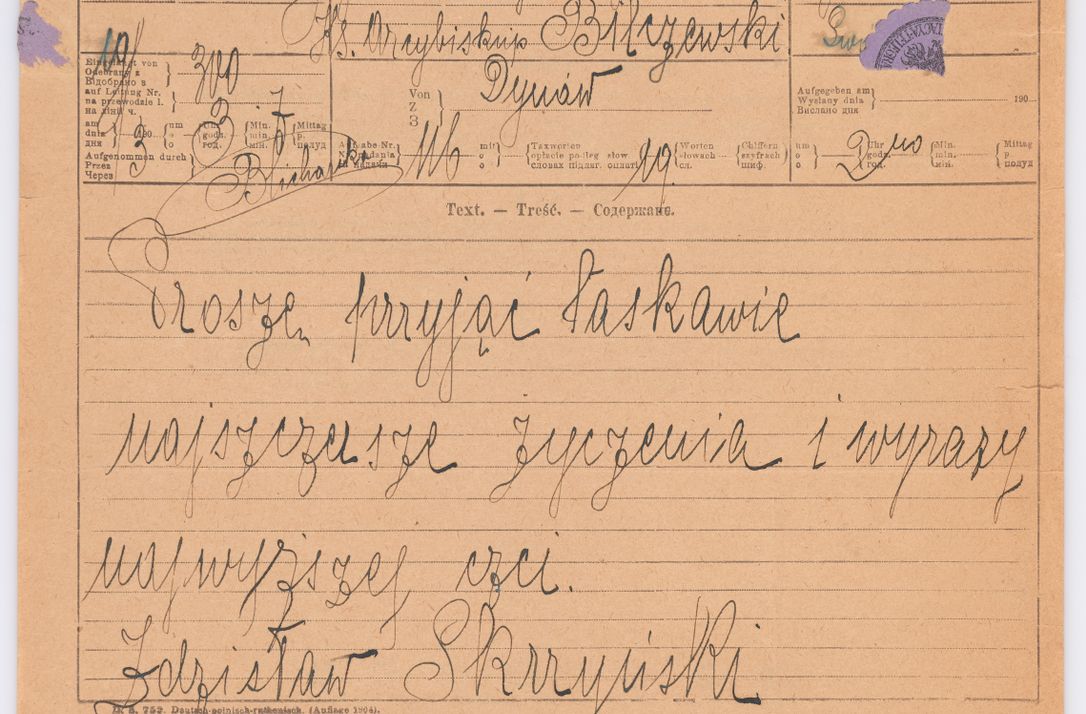 Ks. Arcybiskup Bilczewski
Eingelangt von
Odebrany z
Відобрано з
auf Leitung Nr.
na przewodzie l.
на лінії ч.
300
Von
Z
З
Dynów
Aufgegeben am
Wysłany dnia
Вислано дня
190
am
dnia
дня
190
um
o
о
Uhr
godz.
год.
Min.
min.
мін.
Mittag
p.
полуд
3
3
7
Aufgenommen durch
Przez
Через
Aufgabe-Nr.
Nr. nadania
116
mit
o
о
Taxworten
opłacie podleg. słow.
словах підляг. оплаті
19
Worten
słowach
сл.
Chiffern
szyfrach
шиф.
um
o
о
Uhr
godz.
год.
Min.
min.
мін.
Mittag
p.
полуд
Text. — Treść. — Содержанє.
Proszę przyjąć łaskawie
najszczersze życzenia i wyrazy
najwyższej czci.
Zdzisław Skrzyński
D. S. 752. Deutsch-polnisch-ruthenisch. (Auflage 1904).